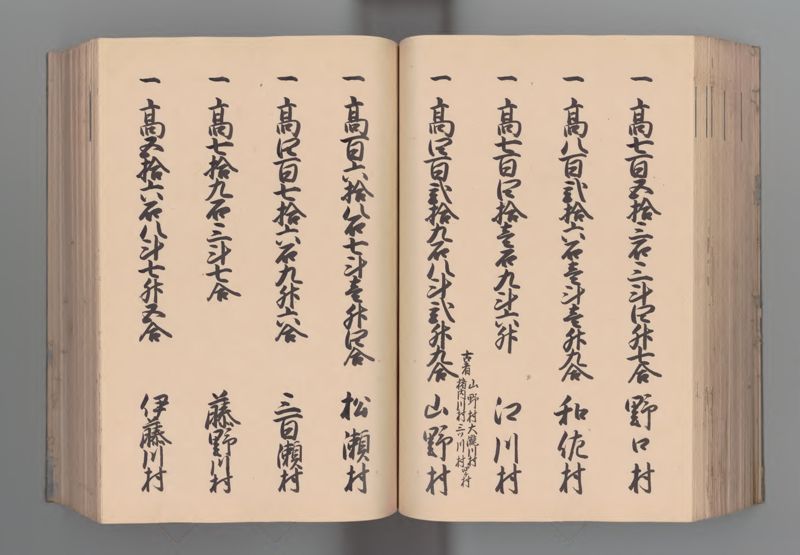 一 高七百五拾三石三斗四升七合 野口村
一 高八百弐拾六石壱斗壱升九合 和佐村
一 高七百四拾壱石九斗六升 江川村
古者 山野村大瀧川村
猪内川村三ツ川村
一 高四百弐拾九石八斗弐升九合 山野村
一 高百六拾八石七斗壱升四合 松瀬村
一 高四百七拾六石九升六合 三百瀬村
一 高七拾九石三斗七合 藤野川村
一 高五拾六石八斗七升五合 伊藤川村